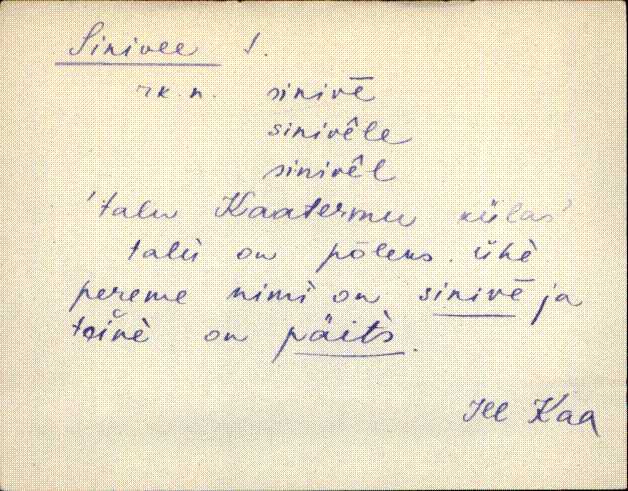 Sinivee S.
rk. n. sinivē
sinivêle
sinivêl
'talu Kaatermu külas'
talù on põlens. ühè
pereme nimì on sinivē ja
tȯinè on päits̀.
Kaa